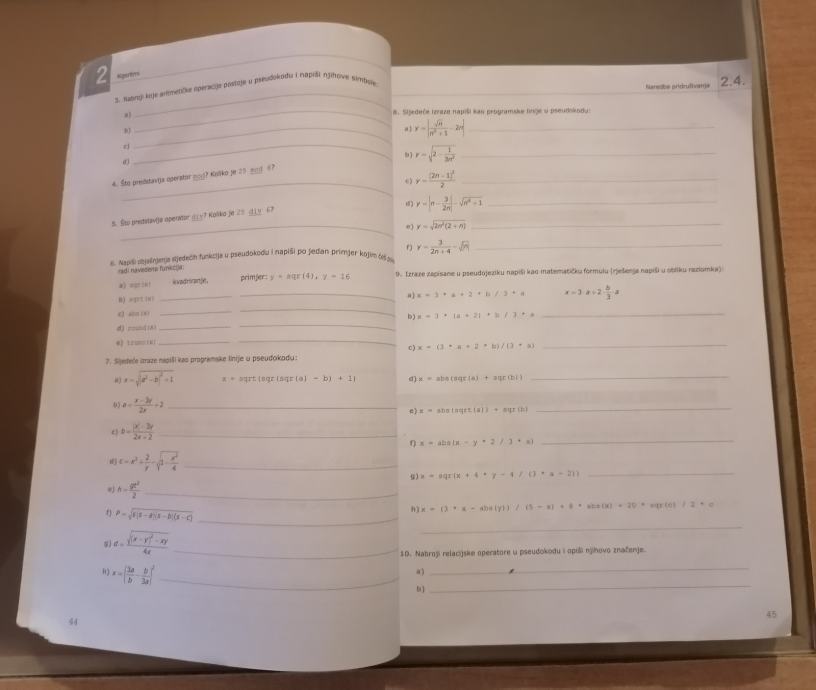 2
Algoritmi
3. Nabroji koje aritmetičke operacije postoje u pseudokodu i napiši njihove simbole:
a)
b)
c)
d)
4. Što predstavlja operator mod? Koliko je 25 mod 6?
5. Što predstavlja operator div? Koliko je 25 div 6?
6. Napiši objašnjenja sljedećih funkcija u pseudokodu i napiši po jedan primjer kojim
radi navedena funkcija:
a) sqr(x) kvadriranje, primjer: y = sqr(4), y = 16
b) sqrt(x)
c) abs(x)
d) round(x)
e) trunc(x)
7. Sljedeće izraze napiši kao programske linije u pseudokodu:
a) x = √((a² − b)² + 1) x = sqrt(sqr(sqr(a) - b) + 1)
b) a = (x − 3y)/2x + 2
c) b = (|x| − 3y)/(2x − 2)
d)
e) h = gt²/2
f) P = √(s(s − a)(s − b)(s − c))
g) d = √((x − y)² − xy)/4x
h)
44
Naredbe pridruživanja 2.4.
8. Sljedeće izraze napiši kao programske linije u pseudokodu:
a) y = |√n/(n² + 1) − 2n|
b) y = √(2 − 1/3n²)
c) y = (2n − 1)²/2
d)
e) y = √(2n²(2 + n))
f) y = 3/(2n + 4) − √|n|
9. Izraze zapisane u pseudojeziku napiši kao matematičku formulu (rješenja napiši u obliku razlomka):
a) x = 3 * a + 2 * b / 3 * a x = 3·a + 2·b/3·a
b) x = 3 * (a + 2) * b / 3 * a
c) x = (3 * a + 2 * b) / (3 * a)
d) x = abs(sqr(a) + sqr(b))
e) x = abs(sqrt(a)) + sqr(b)
f) x = abs(x - y * 2 / 3 * a)
g) x = sqr(x + 4 * y - 4 / (3 * a - 2))
h) x = (3 * x - abs(y)) / (5 - a) + 8 * abs(x) + 20 * sqr(c) / 2 * c
10. Nabroji relacijske operatore u pseudokodu i opiši njihovo značenje.
a)
b)
45